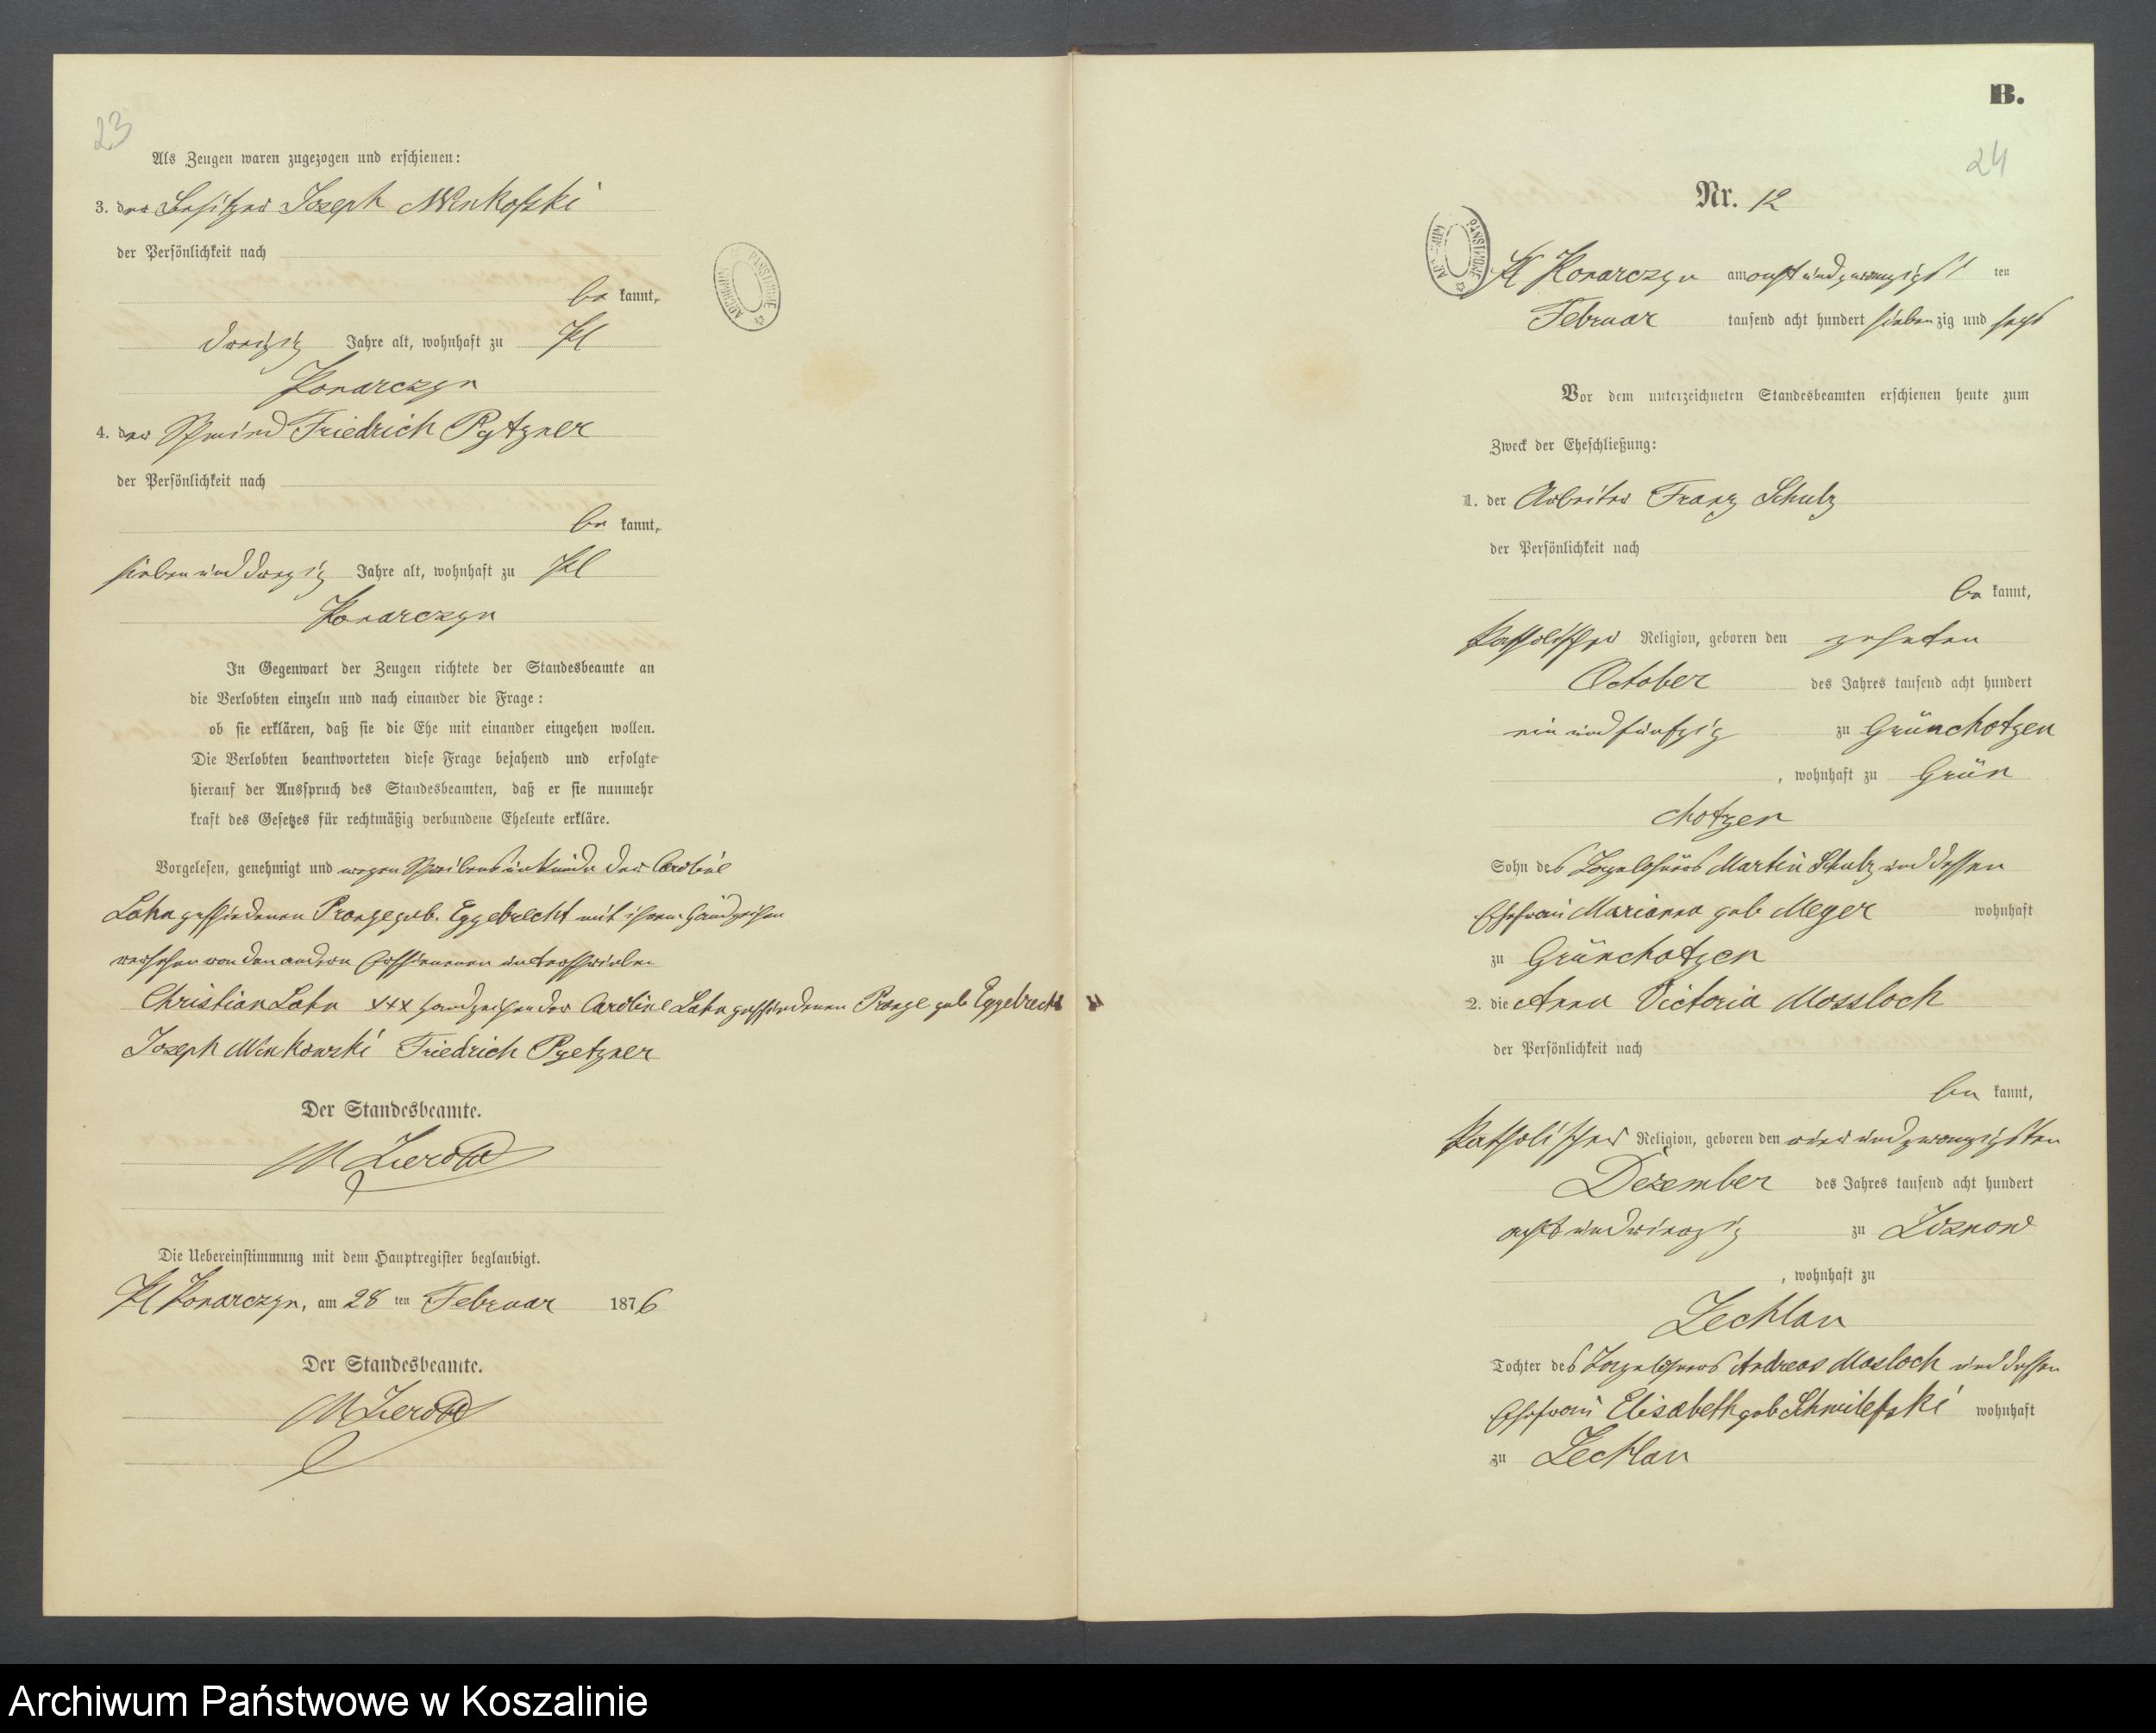 23
Als Zeugen waren zugezogen und erschienen:
3. der Besitzer Joseph
der Persönlichkeit nach
be kannt,
dreizig Jahre alt, wohnhaft zu Kl
Konarczyn
4. der Schmied Friedrich Pytzner
der Persönlichkeit nach
be kannt,
sieben und dreizig Jahre alt, wohnhaft zu Kl
Konarczyn
In Gegenwart der Zeugen richtete der Standesbeamte an
die Verlobten einzeln und nach einander die Frage:
ob sie erklären, daß sie die Ehe mit einander eingehen wollen.
Die Verlobten beantworteten diese Frage bejahend und erfolgte
hierauf der Ausspruch des Standesbeamten, daß er sie nunmehr
kraft des Gesetzes für rechtmäßig verbundene Eheleute erkläre.
Vorgelesen, genehmigt und wegen Schreibensunkunde der Caroline
Lahn geschiedenen Prange geb. Eggebrecht mit ihrem Handzeichen
versehen von den andern Erschienenen unterschrieben
Christian Lahn xxx Handzeichen der Caroline Lahn geschiedenen Prange geb Eggebrecht
Joseph Friedrich Pyetzner
Der Standesbeamte.
Die Uebereinstimmung mit dem Hauptregister beglaubigt.
Kl Konarczyn, am 28 ten Februar 1876
Der Standesbeamte.
B.
24
Nr. 12
ARCHIWUM PAŃSTWOWE
Kl Konarczyn am acht und zwanzigst ten
Februar tausend acht hundert sieben zig und sechs
Vor dem unterzeichneten Standesbeamten erschienen heute zum
Zweck der Eheschließung:
1. der Arbeiter Franz Schulz
der Persönlichkeit nach
be kannt,
katholischer Religion, geboren den zehnten
October des Jahres tausend acht hundert
ein und fünfzig zu Grünchotzen
, wohnhaft zu Grün
chotzen
Sohn des Tagelöhners Martin Schulz und dessen
Ehefrau Marianna geb Meyer wohnhaft
zu Grünchotzen
2. die Anna Victoria Mossloch
der Persönlichkeit nach
be kannt,
katholischer Religion, geboren den vier und zwanzigsten
Dezember des Jahres tausend acht hundert
acht und vierzig zu
, wohnhaft zu
Zechlau
Tochter des Tagelöhners Andreas Mosloch und dessen
Ehefrau Elisabeth geb wohnhaft
zu Zechlau
Archiwum Państwowe w Koszalinie